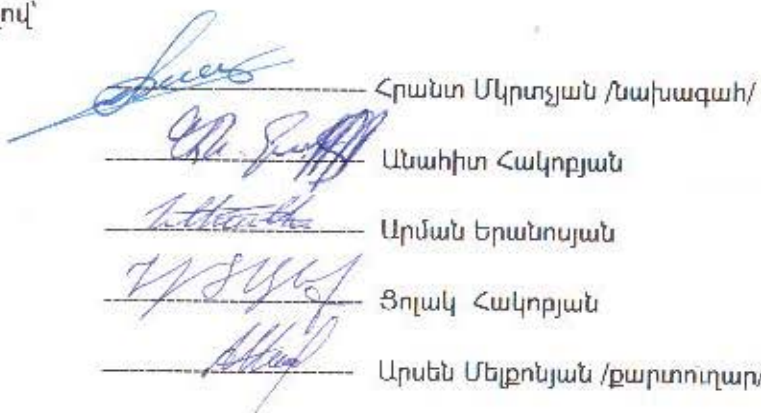 ով՝
Հրանտ Մկրտչյան /նախագահ/
Անահիտ Հակոբյան
Արման Երանոսյան
Ցոլակ Հակոբյան
Արսեն Մելքոնյան /քարտուղար/